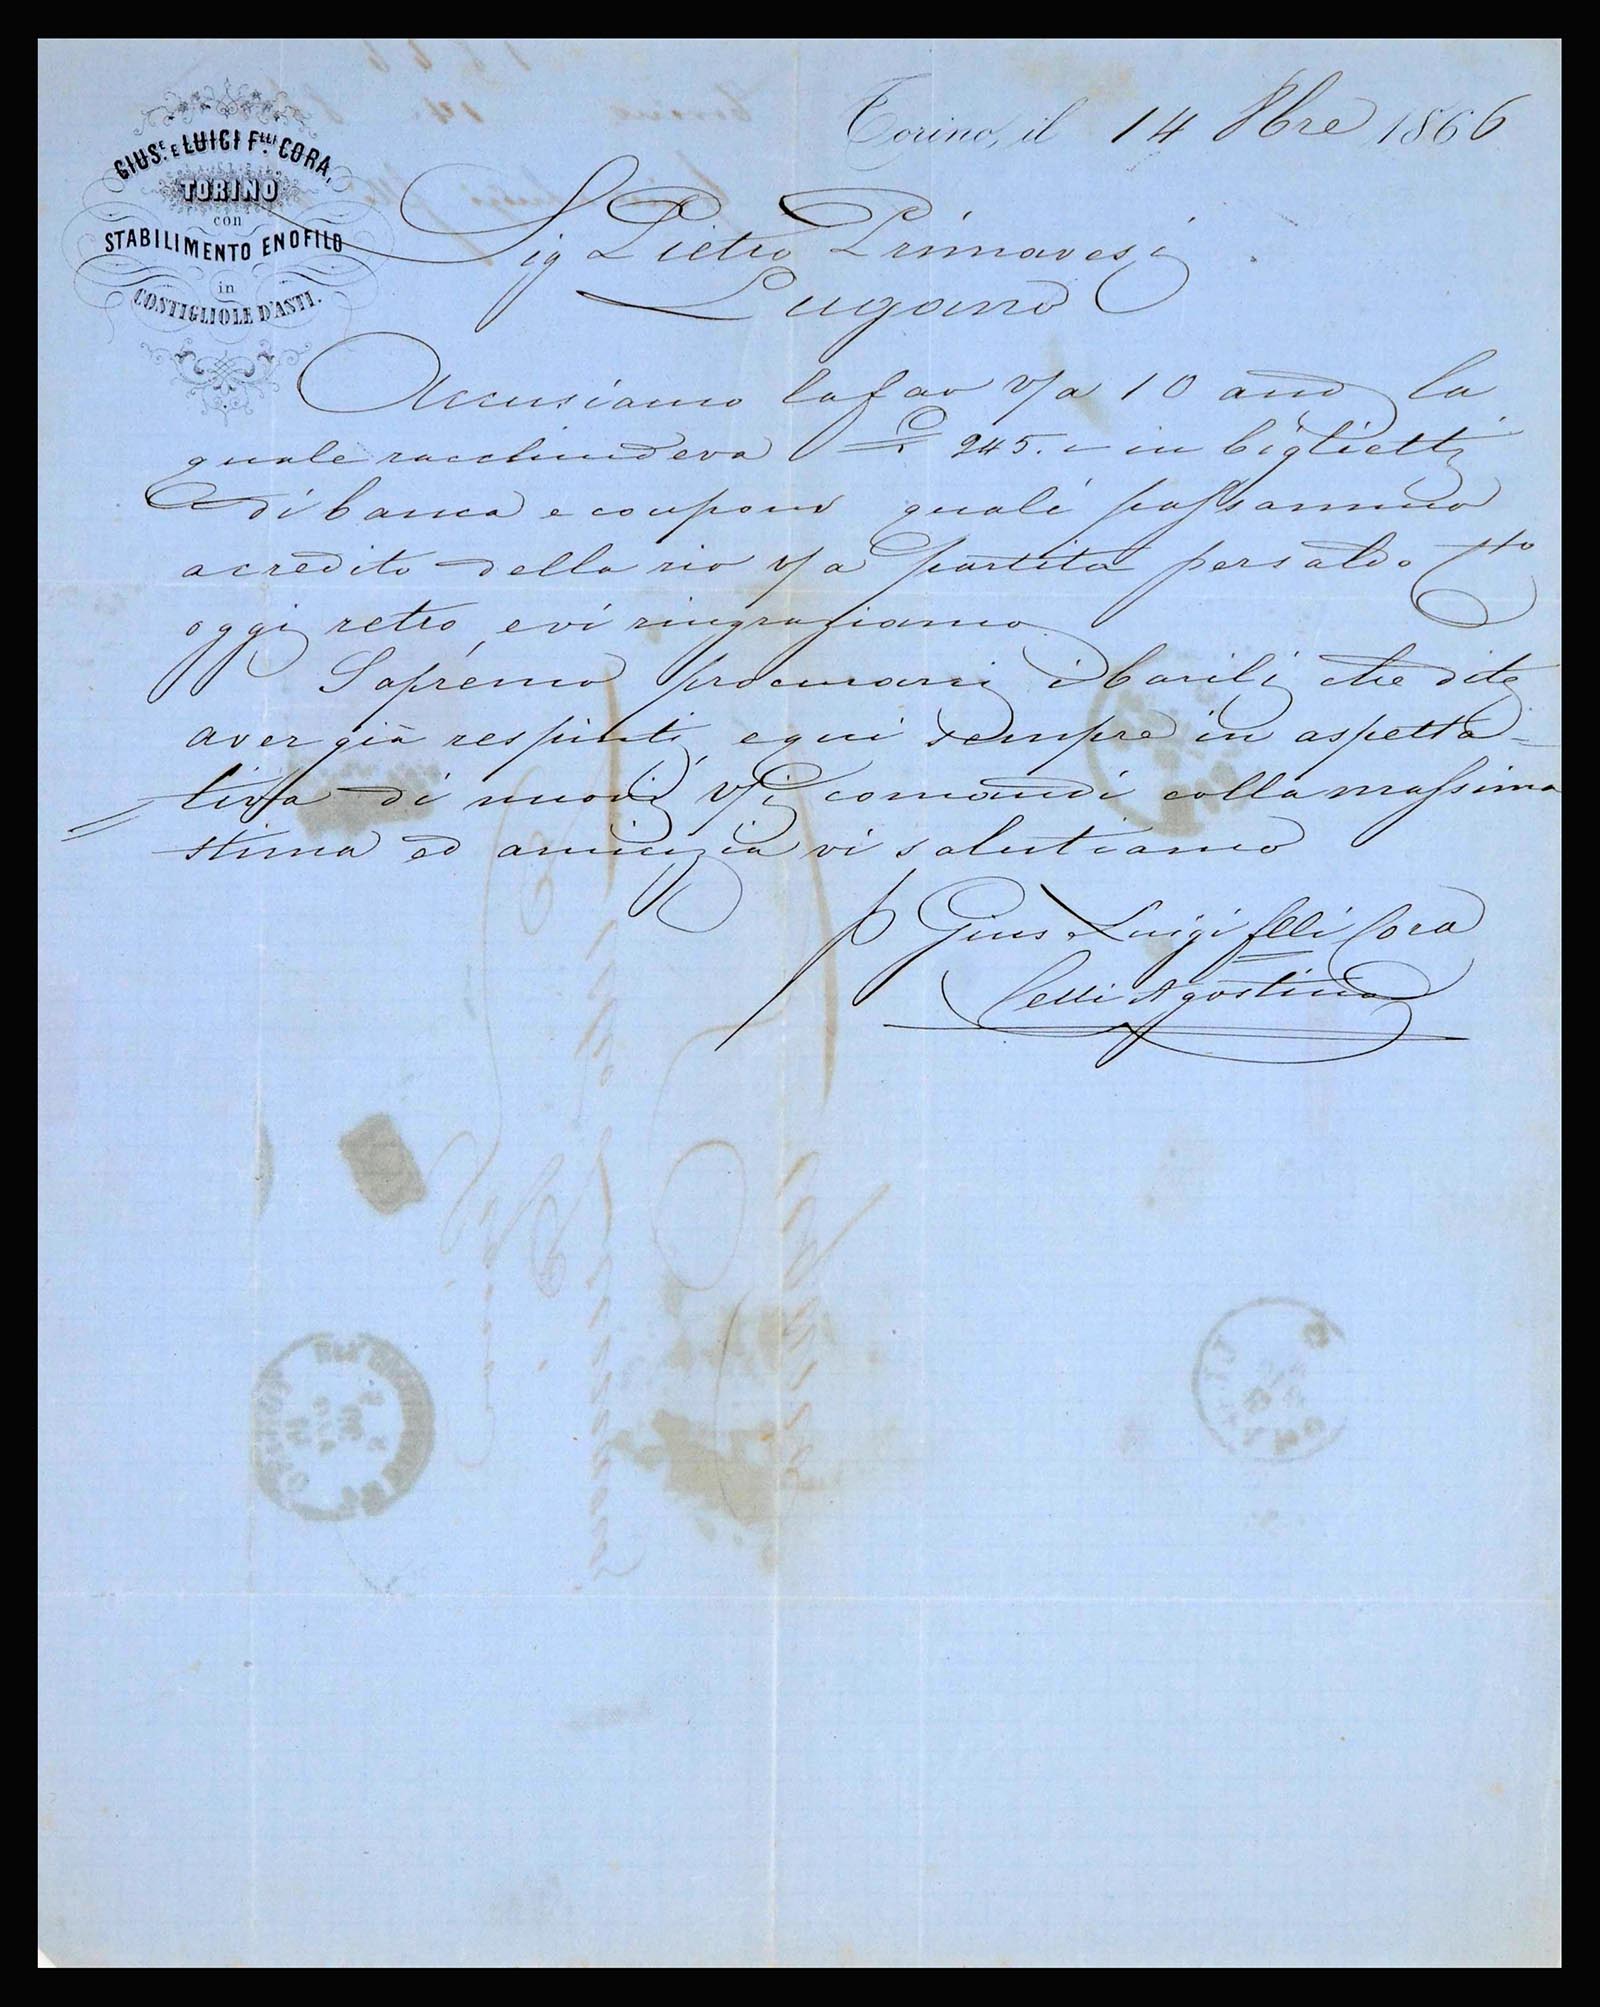 GIUS.E E LUIGI F.LLI CORA,
TORINO
con
STABILIMENTO ENOFILO
in
COSTIGLIOLE D'ASTI.
Torino, il 14 8bre 1866
Sig Pietro Primavesi
Lugano
Accusiamo la fav v/a 10 and la
quale racchiudeva £ 245. – in biglietti
di banca e coupons quali passammo
a credito della v/a partita per saldo
oggi retro, e vi ringraziamo
Saprémo procurarci i barili che dite
aver già respinti, e qui sempre in aspetta=
=tiva di nuovi v/i comandi colla massima
stima ed amicizia vi salutiamo
p Gius e Luigi flli Cora
Celli Agostino